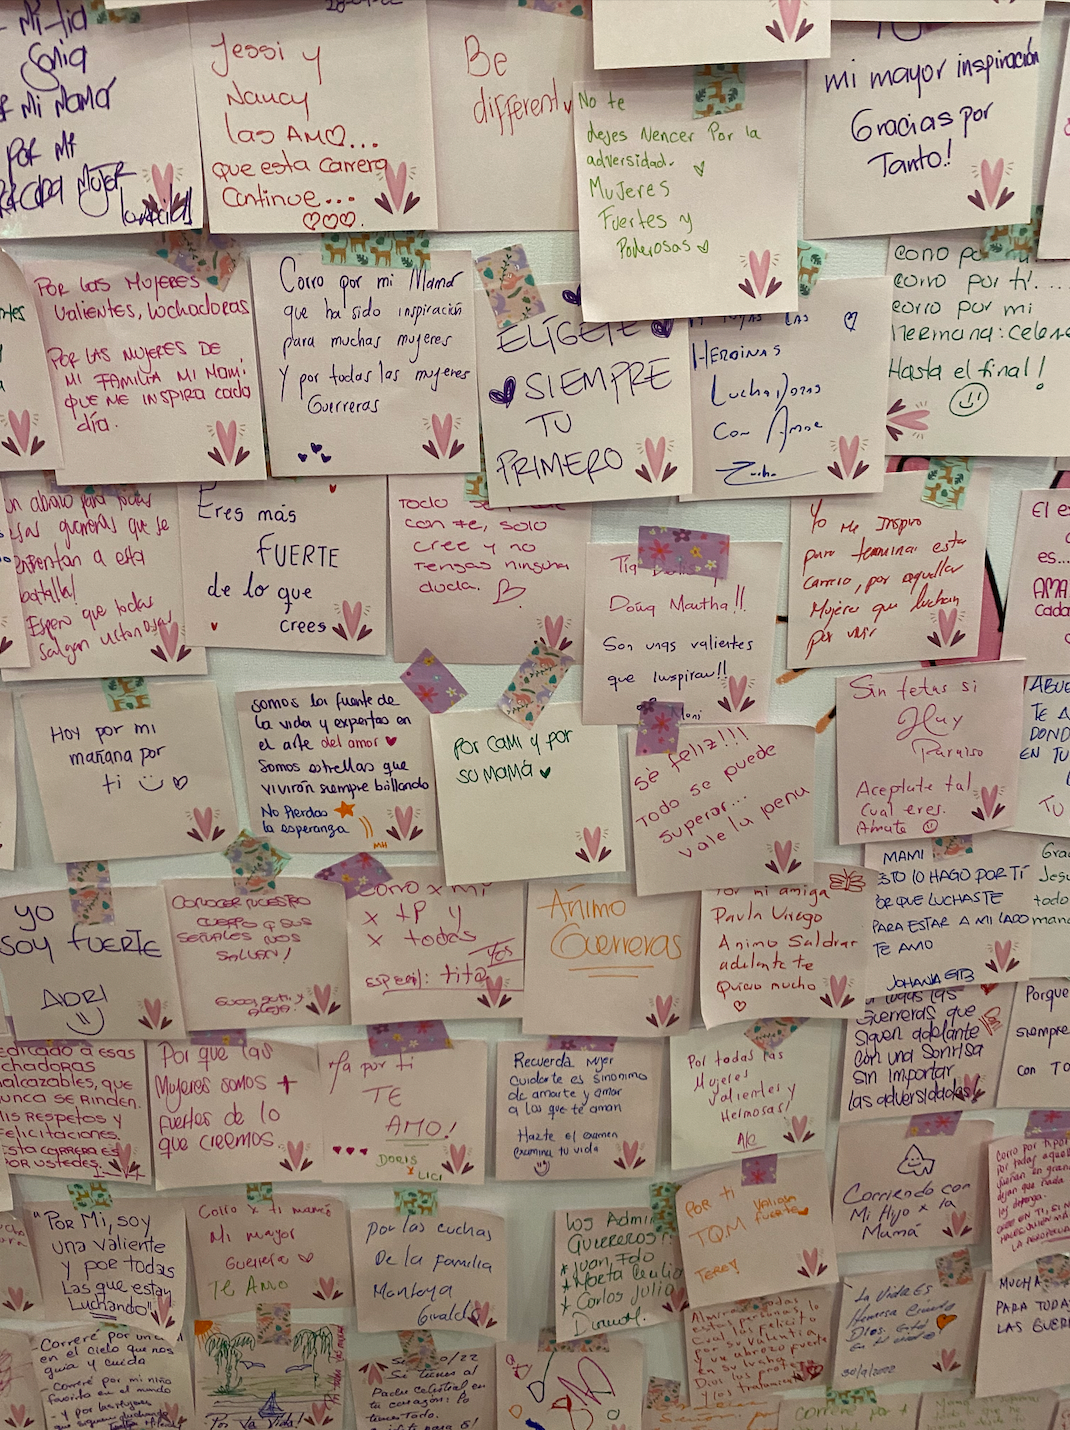 Mi tia
Sonia
Mi Mamá
por Mi
Mujer
Jessi y
Nancy
las AMO...
que esta carrera
Continue...
Be
different
No te
dejes Vencer Por la
adversidad.
Mujeres
Fuertes y
Poderosas
mi mayor inspiración
Gracias por
Tanto!
Por las Mujeres
valientes, luchadoras
Por las mujeres de
mi familia mi mami
que me inspira cada
día.
Corro por mi Mamá
que ha sido inspiración
para muchas mujeres
Y por todas las mujeres
Guerreras
ELÍGETE
SIEMPRE
TU
PRIMERO
las
Heroinas
Luchadoras
Con Amor
corro por ti....
corro por mi
hermana: Celene
Hasta el final!
un abrazo para todas
esas guerreras que se
enfrentan a esta
batalla!
Espero que todas
Salgan victoriosas
Eres más
FUERTE
de lo que
crees
Todo se
con fe, solo
cree y no
tengas ninguna
duda.
Tia
Doña Martha!!
Son unas valientes
que Inspiran!!
Yo me Inspiro
para terminar esta
Carrera, por aquellas
Mujeres que luchan
por vivir
El es
es...
AMA
Cada
Hoy por mi
mañana por
ti
Somos la fuente de
la vida y expertas en
el arte del amor
Somos estrellas que
vivirán siempre brillando
No Pierdas
la esperanza
MH
Por Cami y por
su Mamá
Sé feliz!!!
Todo se puede
superar...
vale la pena
Sin tetas si
Hay
Paraiso
Aceptate tal
Cual eres.
Amate
ABUE
TE A
DOND
EN TU
TU
YO
SOY FUERTE
ADRI
CONOCER NUESTRO
CUERPO Y SUS
SEÑALES NOS
SALVAN!
Corro x mi
x tP y
x todas
especial: tita
Ánimo
Guerreras
Por mi amiga
Paula
Animo Saldras
adelante te
Quiero mucho
MAMI
ESTO LO HAGO POR TÍ
PORQUE LUCHASTE
PARA ESTAR A MI LADO
TE AMO
Gra
Jesu
todo
mano
Dedicado a esas
luchadoras
inalcanzables, que
nunca se rinden.
Mis respetos y
felicitaciones.
Esta carrera es
por ustedes.
Por que las
Mujeres somos +
fuertes de lo
que creemos.
Ya por ti
TE
AMO!
DORIS
LICI
Recuerda Mujer
cuidarte es sinonimo
de amarte y amar
a los que te aman
Hazte el examen
examina tu vida
Por todas las
Mujeres
valientes y
Hermosas!
todas las
Guerreras que
Siguen adelante
Con una Sonrisa
Sin importar
las adversidades!
Porque
siempre
con TO
"Por Mi, soy
una valiente
y por todas
Las que estan
Luchando"
Corro x ti mamá
Mi mayor
Guerrera
Te Amo
por las luchas
De la familia
Montoya
Giraldo
Los Admiro
Guerreros!!
* Juan Fdo
* Marta Cecilia
* Carlos Julio
Por ti
TQM
Valiosa
fuerte
TERE!
Corriendo con
Mi Hijo x la
Mamá
Corro por ti por
por todas aquellas
La Vida Es
Hermosa
Dios está
en tu vida
30/9/2022
MUCHA
PARA TODA
LAS GUERR
Correré por un
en el cielo que nos
guia y cuida
- Correré por mi niño
favorito en el mundo
- Y por las Mujeres
Por La Vida!
Padre celestial en
tu corazón: Po